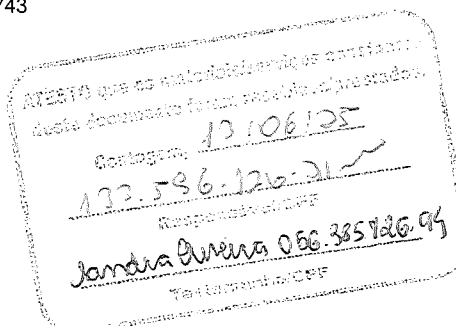 /43
ATESTO que os materiais/serviços constantes
deste documento foram recebidos/prestados.
Contagem, 13/06/25
133.596.126-21
Responsável/CPF
Sandra Oliveira 066.385126.94
Testemunha/CPF